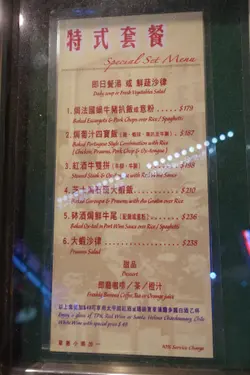 特式套餐
Special Set Menu
即日餐湯 或 鮮蔬沙律
Daily soup or Fresh Vegetables Salad
1. 焗法國蝸牛豬扒飯或意粉 $179
Baked Escargots & Pork Chops over Rice / Spaghetti
2. 焗葡汁四寶飯 $187
Baked Portuguese Style Combination with Rice
(Chicken, Prawns, Pork Chop & Ox-tongue)
3. 紅酒牛雙拼 $198
Stewed Steak & Ox-tongue with Red Wine Sauce
4. 芝士焗石斑大蝦飯 $210
Baked Garoupa & Prawns with Au Gratin over Rice
5. 砵酒焗鮮牛尾 $236
Baked Ox-tail in Port Wine Sauce over Rice / Spaghetti
6. 大蝦沙律 $238
Prawns Salad
甜品
Dessert
即磨咖啡/茶/橙汁
Freshly Brewed Coffee/Tea or Orange Juice
White Wine with special price $48
10% Service Charge